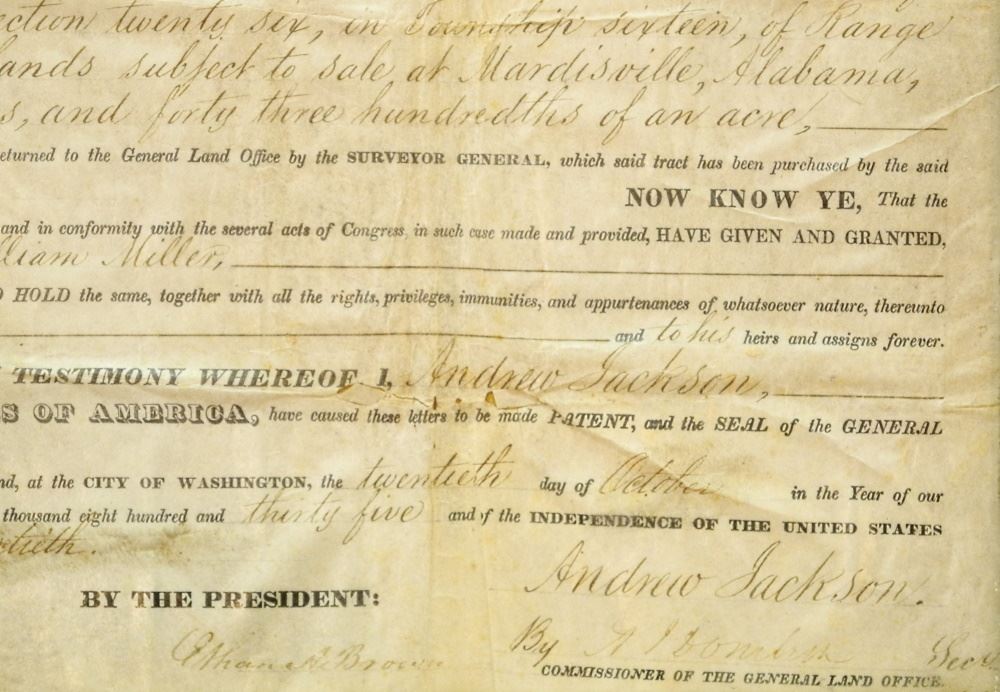 ection twenty six, in Township sixteen, of Range
ands subject to sale at Mardisville, Alabama,
s, and forty three hundredths of an acre,
eturned to the General Land Office by the SURVEYOR GENERAL, which said tract has been purchased by the said
NOW KNOW YE, That the
and in conformity with the several acts of Congress, in such case made and provided, HAVE GIVEN AND GRANTED,
lliam Miller,
O HOLD the same, together with all the rights, privileges, immunities, and appurtenances of whatsoever nature, thereunto
and to his heirs and assigns forever.
TESTIMONY WHEREOF I, Andrew Jackson,
S OF AMERICA, have caused these letters to be made PATENT, and the SEAL of the GENERAL
nd, at the CITY OF WASHINGTON, the twentieth day of October in the Year of our
thousand eight hundred and thirty five and of the INDEPENDENCE OF THE UNITED STATES
tieth.
Andrew Jackson.
BY THE PRESIDENT:
By A J Donelson Secy.
Ethan A. Brown
COMMISSIONER OF THE GENERAL LAND OFFICE.